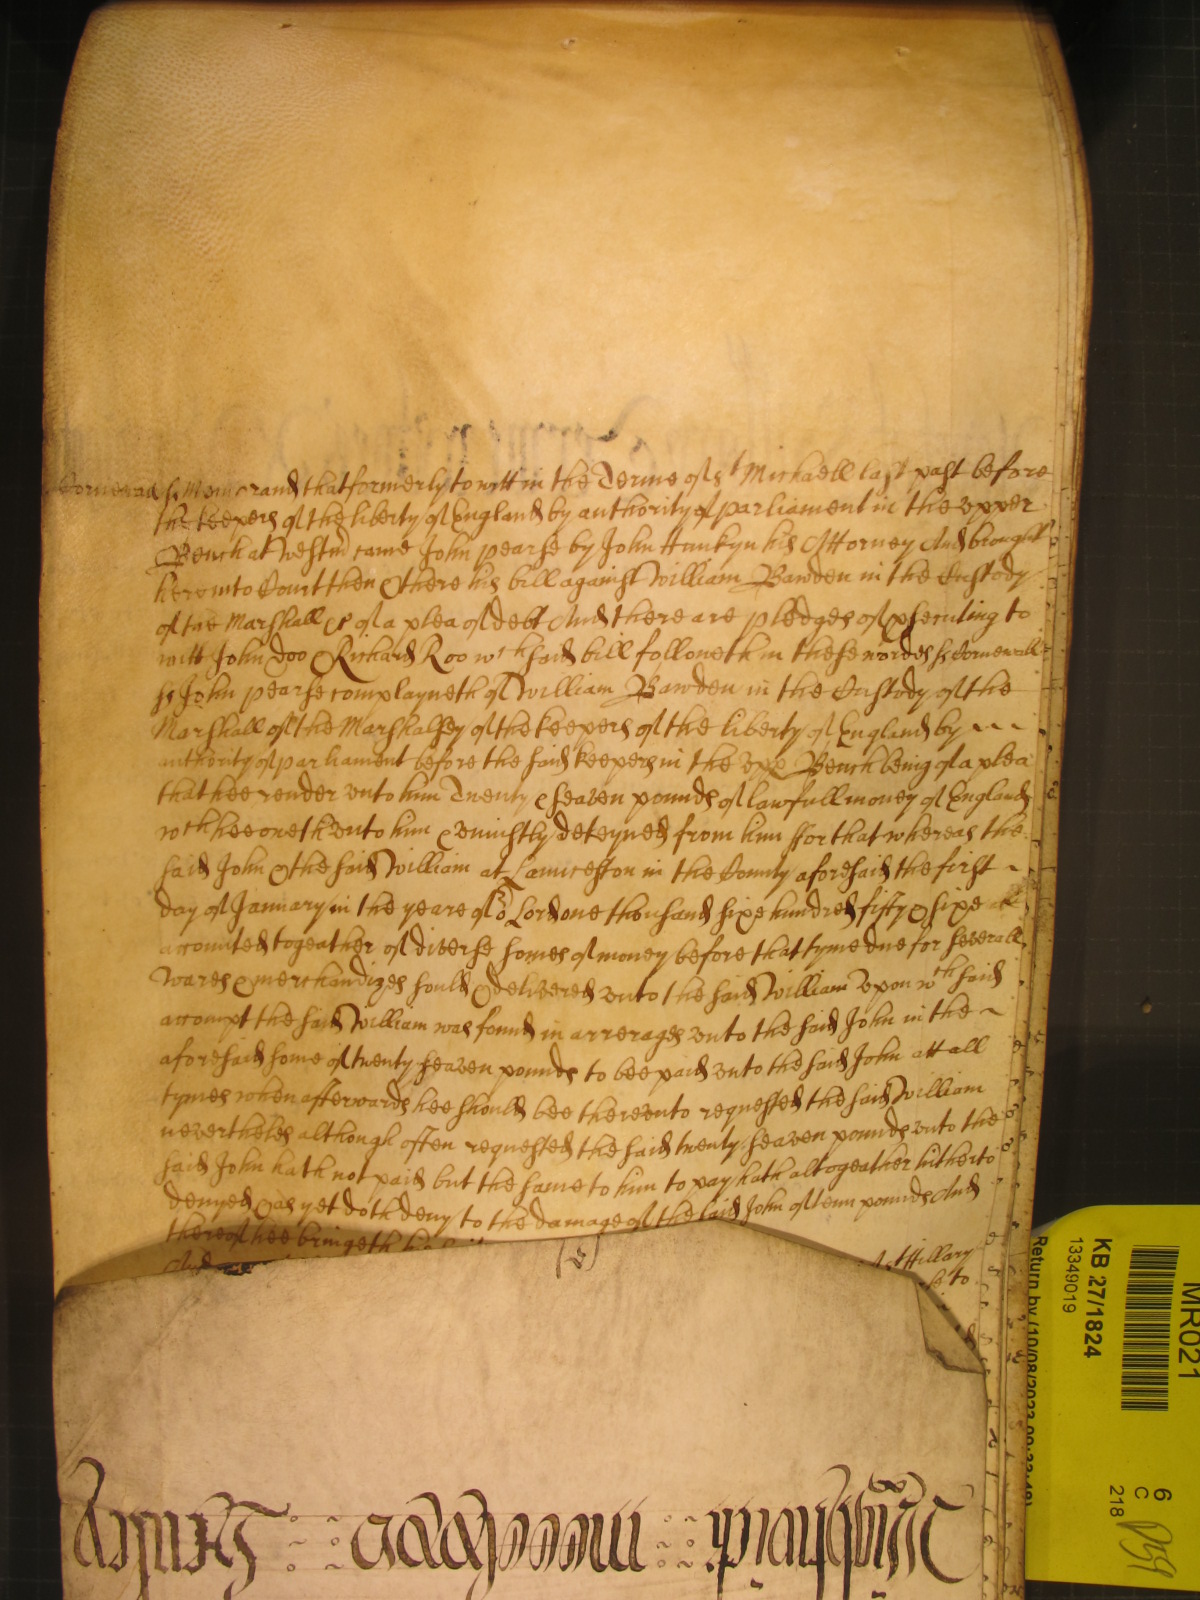 Cornewall ss Memorand that formerly to witt in the Terme of St Michaell last past before
the keepers of the liberty of England by authority of parliament in the vpper
Bench at Westmr came John Pearse by John Hunkyn his Attorney And brought
here into Court then & there his bill against William Bawden in the Custody
of the Marshall &c of a plea of debt And there are pledges of psecuting to
witt John Doo & Richard Roo wch said bill followeth in these wordes ss Cornewall
ss John Pearse complayneth of William Bawden in the Custody of the
Marshall of the Marshalsey of the keepers of the liberty of England by
authority of parliament before the said keepers in the vpp Bench being of a plea
that hee render vnto him Twenty & seaven pounds of lawfull money of England
wch hee oweth vnto him & vniustly deteyned from him ffor that whereas the
said John & the said William at Launceston in the County aforesaid the first
day of January in the yeare of or Lord one thousand sixe hundred fifty & sixe
accounted togeather of diverse somes of money before that tyme due for severall
wares & merchandizes sould & delivered vnto the said William vpon wch said
accompt the said William was found in arrerages vnto the said John in the
aforesaid some of twenty seaven pounds to bee paid vnto the said John att all
tymes when afterwards hee should bee therevnto requested the said William
neverthelesse although often requested the said twenty seaven pounds vnto the
said John hath not paid but the same to him to pay hath altogeather hitherto
denyed & as yet doth deny to the damage of the said John of tenn pounds And
thereof hee bringeth his
And
Hillary
to
KB 27/1824
13349019
MR021
6
C
218